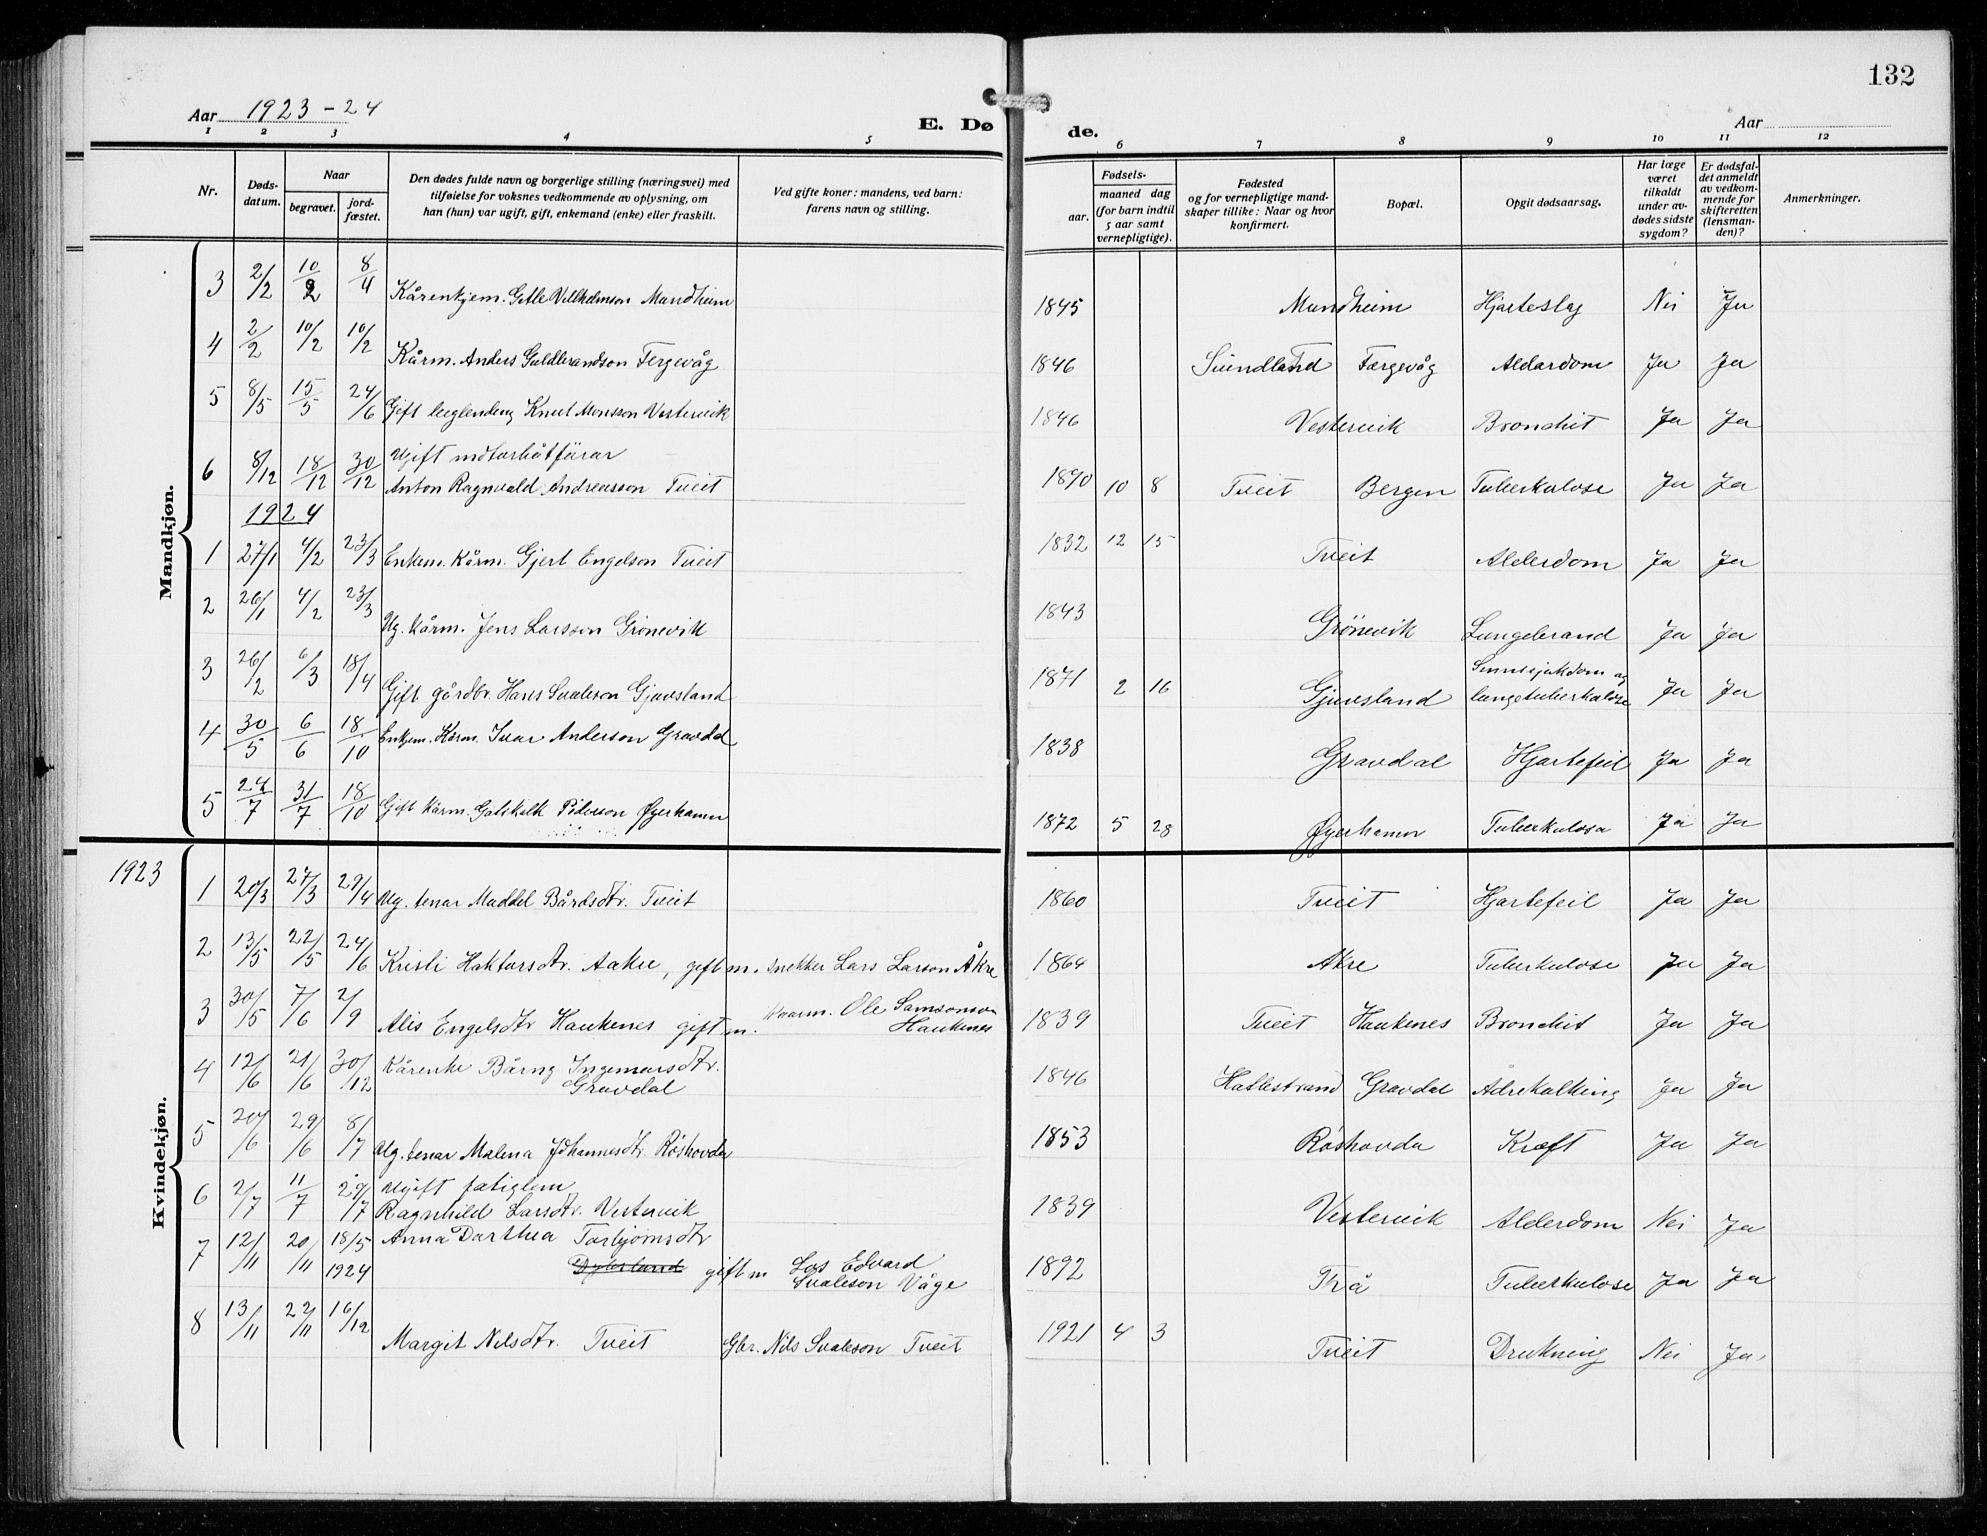 132
Aar 1923-24
E. Døde.
Aar
1 2 3 4 5 6 7 8 9 10 11 12
Nr.
Døds-datum.
Naar
begravet.
jord-fæstet.
Den dødes fulde navn og borgerlige stilling (næringsvei) med
tilføielse for voksnes vedkommende av oplysning, om
han (hun) var ugift, gift, enkemand (enke) eller fraskilt.
Ved gifte koner: mandens, ved barn:
farens navn og stilling.
Fødsels-
aar.
maaned dag
(for barn indtil
5 aar samt
vernepligtige).
Fødested
og for vernepligtige mand-
skaper tillike: Naar og hvor
konfirmert.
Bopæl.
Opgit dødsaarsag.
Har læge
været
tilkaldt
under av-
dødes sidste
sygdom?
Er dødsfal-
det anmeldt
av vedkom-
mende for
skifteretten
(lensman-
den)?
Anmerkninger.
Mandkjøn.
3 2/2 10/2 8/4 Kårenkjem. Gitle Villhelmson Mundheim 1845 Mundheim Hjarteslag Nei Ja
4 2/2 10/2 10/2 Kårm. Anders Guldbrandson Fergevåg 1846 Svindland Færgevåg Aldardom Ja Ja
5 8/5 15/5 24/6 Gift Knut Monsson Vestervik 1846 Vestervik Bronchit Ja Ja
6 8/12 18/12 30/12 Ugift motorbåtförar
Anton Ragnvald Andreasson Tveit 1890 10 8 Tveit Bergen Tuberkulose Ja Ja
1924
1 27/1 4/2 23/3 Enkem. Kårm. Gjert Engelson Tveit 1832 12 15 Tveit Alderdom Ja Ja
2 26/1 4/2 23/3 Ug. Kårm. Jens Larsson Grönevik 1843 Grönevik Lungebrand Ja Ja
3 26/2 6/3 18/4 Gift gårdbr. Hans Svaleson Gjuvsland 1871 2 16 Gjuvsland Sinnssjukdom og
lungetuberkulose Ja Ja
4 30/5 6/6 18/10 Enkjem. Kårm. Ivar Anderson Gravdal 1838 Gravdal Hjartefeil Ja Ja
5 24/7 31/7 18/10 Gift Kårm. Gotskalk Pederson Øyerhamn 1872 5 28 Øyerhamn Tuberkulosa Ja Ja
Kvindekjøn.
1923
1 20/3 27/3 29/4 Ug. tenar Maddel Bårdsdtr. Tveit 1860 Tveit Hjartefeil Ja Ja
2 13/5 22/5 24/6 Kristi Haktorsdtr. Aakre, gift m. snekker Lars Larson Åkre 1864 Åkre Tuberkulose Ja Ja
3 30/5 7/6 2/9 Alis Engelsdtr Haukenes gift m. Kaarm. Ole Samsonson
Haukenes 1839 Tveit Haukenes Bronchit Ja Ja
4 12/6 21/6 30/12 Kårenke Bårny Ingemarsdtr.
Gravdal 1846 Hatlestrand Gravdal Ådrekalking Ja Ja
5 20/6 29/6 8/7 Ug. tenar Malena Johannesdtr. Røshovda 1853 Røshovda Kræft Ja Ja
6 2/7 11/7 29/7 Ugift fatiglem
Ragnhild Larsdtr. Vestervik 1839 Vestervik Alderdom Nei Ja
7 12/11 20/11 18/5 1924 Anna Darthea Torbjornsdtr
Dyterland gift m Los Edvard
Svaleson Våge 1892 Trå Tuberkulose Ja Ja
8 13/11 22/11 16/12 Margit Nilsdtr. Tveit Gbr. Nils Svaleson Tveit 1921 4 3 Tveit Drukning Nei Ja.